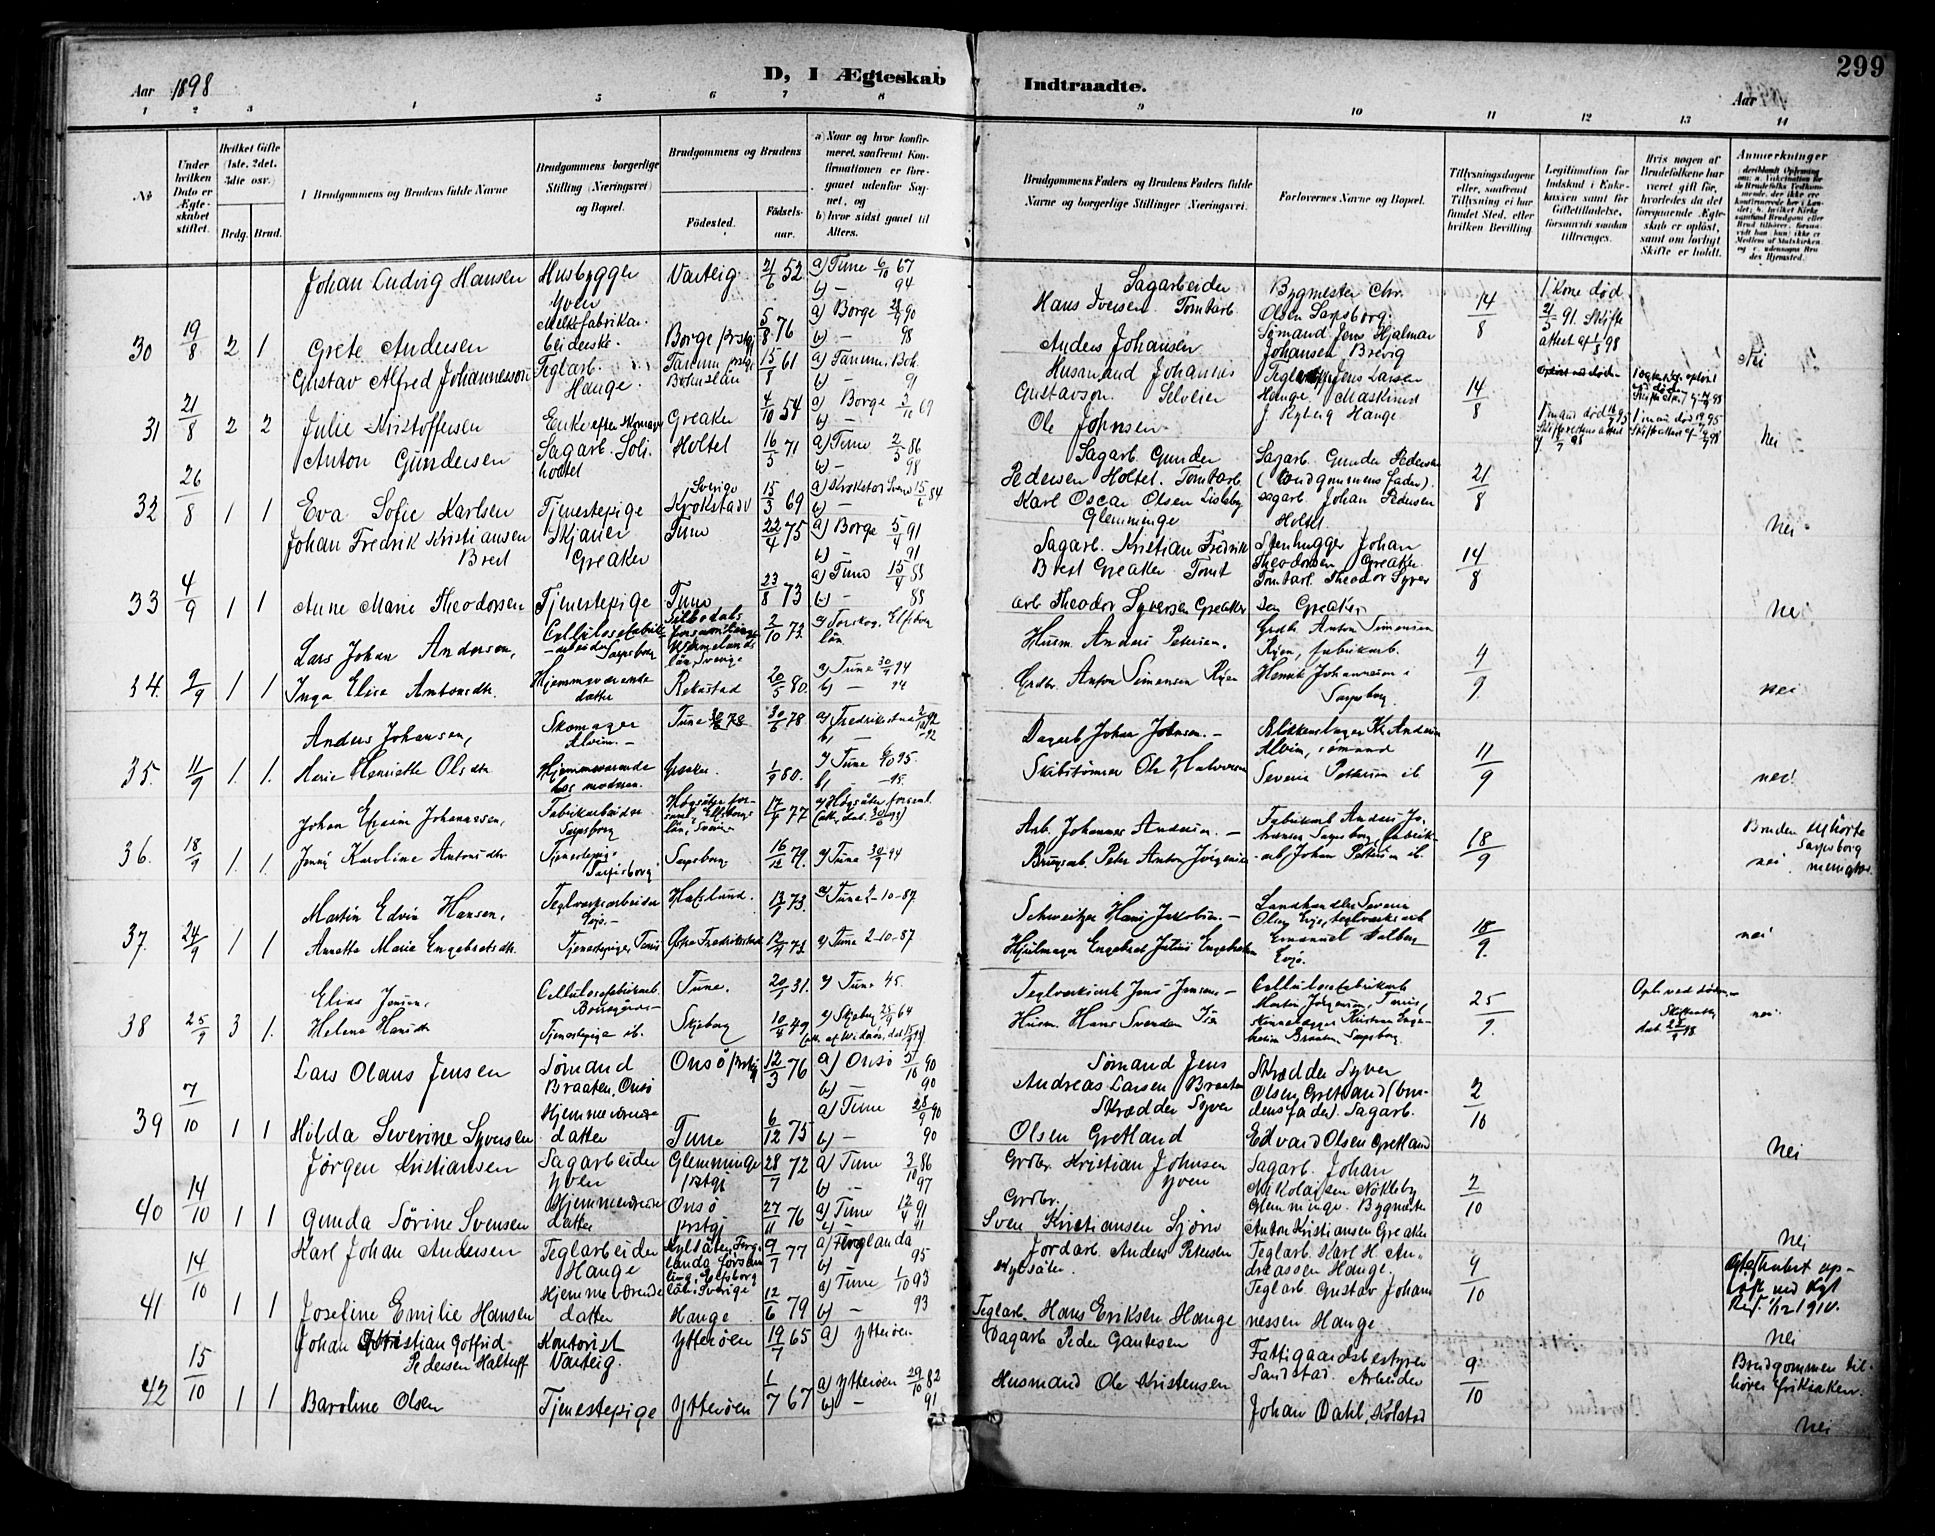 299
Aar 1898
D, I Ægteskab
Indtraadte.
Aar
1 2 3 4 5 6 7 8 9 10 11 12 13 14
No
Under hvilken Dato er Ægteskabet stiftet.
Hvilket Gifte (1ste, 2det, 3die osv.)
Brdg. Brud.
Brudgommens og Brudens fulde Navne
Brudgommens borgerlige Stilling (Næringsvei) og Bopæl.
Brudgommens og Brudens
Fødested.
Fødselsaar.
a) Naar og hvor konfirmeret, saafremt Konfirmationen er foregaaet udenfor Sognet, og
b) hvor sidst gaaet til Alters.
Brudgommens Faders og Brudens Faders fulde Navne og borgerlige Stillinger (Næringsvei.
Forlovernes Navne og Bopæl.
Tillysningsdagene eller, saafremt Tillysning ei har fundet Sted, efter hvilken Bevilling.
Legitimation for Indskud i Enkekassen samt for Giftetilladelse, forsaavidt saadan tiltrænges.
Hvis nogen af Brudefolkene har været gift før, hvorledes da det foregaaende Ægteskab er opløst, samt om lovligt Skifte er holdt.
Anmærkninger
30 19/8 2 1
Johan Ludvig Hansen Husbygger Yven Varteig 21/6 52 a) Tune 6/10 67 b) — 94
Sagarbeider Hans Iversen Tomtarb. Bygmester Chr. Olsen Sarpsborg. 14/8 1. Kone død 21/5 91. Skifteattest af 1/8 98
Grete Andersen Borge prstgj 5/8 76 a) Borge 90 b) — 98
Anders Johansen Sømand Jens Hjalmar Johansen Brevig Nei
31 21/8 2 2
Gustav Alfred Johannesson Teglarb. Hauge. Tanum prstgj Bohuslän 15/8 61 a) Tanum, Boh. b) — 91
Husmand Johannes Gustavson Jens Larsen Hauge, Maskinist 14/8
Julie Kristoffersen Enke efter Greaker 4/10 54 a) Borge 69
Ole Johnsen J. Nyberg Hauge nei
32 26/8 1 1
Anton Gundersen Sagarb. Soli Holtet Holtet 16/5 71 a) Tune 2/5 86 b) — 98
Sagarb. Gunder Pedersen Holtet. Tomtarb. Sagarb. Gunder Pedersen (Brudgommens fader). 21/8
Eva Sofie Karlsen Tjenestepige Krokstad Sverige 15/3 69 a) Sverig 15/6 84 b) —
Karl Oscar Olsen Lisleby Glemminge sagarb. Johan Pedersen Holtet nei
33 4/9 1 1
Johan Fredrik Kristiansen Brest Skjauer Greaker Tune 22/4 75 a) Borge 5/4 91 b) — 91
Sagarb. Kristian Fredrik Brest Greaker. Tomt Stenhugger Johan Theodorsen Greaker 14/8
Anne Marie Theodorsen Tjenestepige Tune 23/8 73 a) Tune 15/4 88 b) — 88
arb. Theodor Syversen Greaker Tomtarb. Theodor Syversen Greaker nei
34. 9/9 1 1
Lars Johan Andersen, Cellulosefabrikarbeider Sarpsborg Sverige 2/10 73 a) Torskog. Elfsborg län
Husm. Anders Petersen. Grdbr. Anton Simensen Ryen, fabrikarb. 4/9
Inga Elise Antonsdtr. Hjemmeværende datter Rekustad 20/5 80. a) Tune 30/9 94 b) — 94
Grdbr. Anton Simensen Ryen Henrik Johannesen i Sarpsborg. nei
35. 11/9 1. 1.
Anders Johansen, Skomager Alvim. — Tune 30/6 78 a) Fredrikstad 92 b) — 92
Dagarb. Johan Johnsen. — Blikkenslager Kr. Andersen Alvim, sømand 11/9
Marie Henriette Olsdtr. Hjemmeværende hos moderen. Greaker. 1/9 80. a) Tune 95. b) — 95.
Skibstømrer Ole Halvorsen Severin Pettersen ib nei
36. 18/9 1. 1.
Johan Efraim Johannessen, Fabrikarbeider Sarpsborg Högsäter forsaml., Elfsborgs län, Sverige 17/9 77 a) Högsäter forsaml.
Arb. Johannes Andersen. — Fabrikarb. Anders Johansen Sarpsborg, fabrikarb. Johan Pettersen ib. 18/9
Jenny Karoline Antonsdtr. Tjenestepige Sarpsborg. Sarpsborg 16/12 79. a) Tune 30/9 94
Brugsarb. Peter Anton Jørgensen Bruden tilhørte Sarpsborg menighed. nei
37. 24/9 1 1
Martin Edvin Hansen, Teglværksarbeider Hafslund. 13/9 73. a) Tune 2-10-87
Schweitzer Hans Jakobsen. — Landhandler Severin Olsen, teglværksarb. 18/9
Annette Marie Engebretsdtr. Tjenestepige, Tune 12/9 73. a) Tune 2-10-87
Hjulmager Engebret Julius Engebretsen Emanuel nei
38 25/9 3 1.
Elias Jensen, Cellulosefabrikarb. Borregaard — Tune. 20/1 31. a) Tune 45.
Teglværksarb. Jens Jensen — Cellulosefabrikarb. Martin Jørgensen, Tune, 25/9. Opl. ved døden — Skifteattest dat. 98
Helene Hansdtr Tjenestepige ib. Skjeberg 10/4 49 a) Skjeberg 25/9 64
Husm. Hans Svendsen Braaten, Sarpsborg. nei
39 7/10 1 1
Lars Olaus Jensen Sømand Braaten, Onsø Onsø prstgj 12/3 76 a) Onsø 5/10 90 b) — 90
Sømand Jens Andreas Larsen Braaten Skrædder Syver Olsen Gretland (brudens fader). Sagarb. 2/10
Hilda Severine Syversen Hjemmeværende datter Tune 6/12 75 a) Tune 28/9 90 b) — 90
Skrædder Syver Olsen Gretland Edvard Olsen Gretland nei
40 14/10 1 1
Jørgen Kristiansen Sagarbeider Yven Glemminge prstgj 28/7 72 a) Tune 3/10 86 b) — 97
Grdbr. Kristian Johnsen Yven Sagarb. Johan Nikolaisen Nøkleby Glemminge. 2/10
Gunda Sørine Svensen Hjemmeværende datter Onsø prstgj 27/11 76 a) Tune 12/4 91 b) — 91
Grdbr. Sven Kristiansen Bygmester Anton Kristiansen Greaker nei
41 14/10 1 1
Karl Johan Andersen Teglarbeider Hauge Sverige 9/7 77 a) Färglanda b) — 95
Jordarb. Anders Petersen Teglarb. Karl H. Andreassen Hauge. 9/10
Josefine Emilie Hansen Hjemmeværende datter Hauge 12/6 79 a) Tune 1/10 93 b) — 93
Teglarb. Hans Eriksen Hauge Teglarb. Gustav Johannessen Hauge Ægteskabet opløst ved kgl. Res. 1/12 1910. nei
42 15/10 1 1
Johan Kristian Gotfred Pedersen Haltuff Kontorist Varteig. Ytterøen 19/7 65 a) Ytterøen
Dagarb. Peder Fattigaardsbestyrer Sandstad. Arbeider 9/10 Brudgommen tilhører frikirken.
Baroline Olsen Tjenestepige Ytterøen 1/7 67 a) Ytterøen 29/10 82 b) — 91
Husmand Ole Kristensen Johan Dahl, Kolstad nei